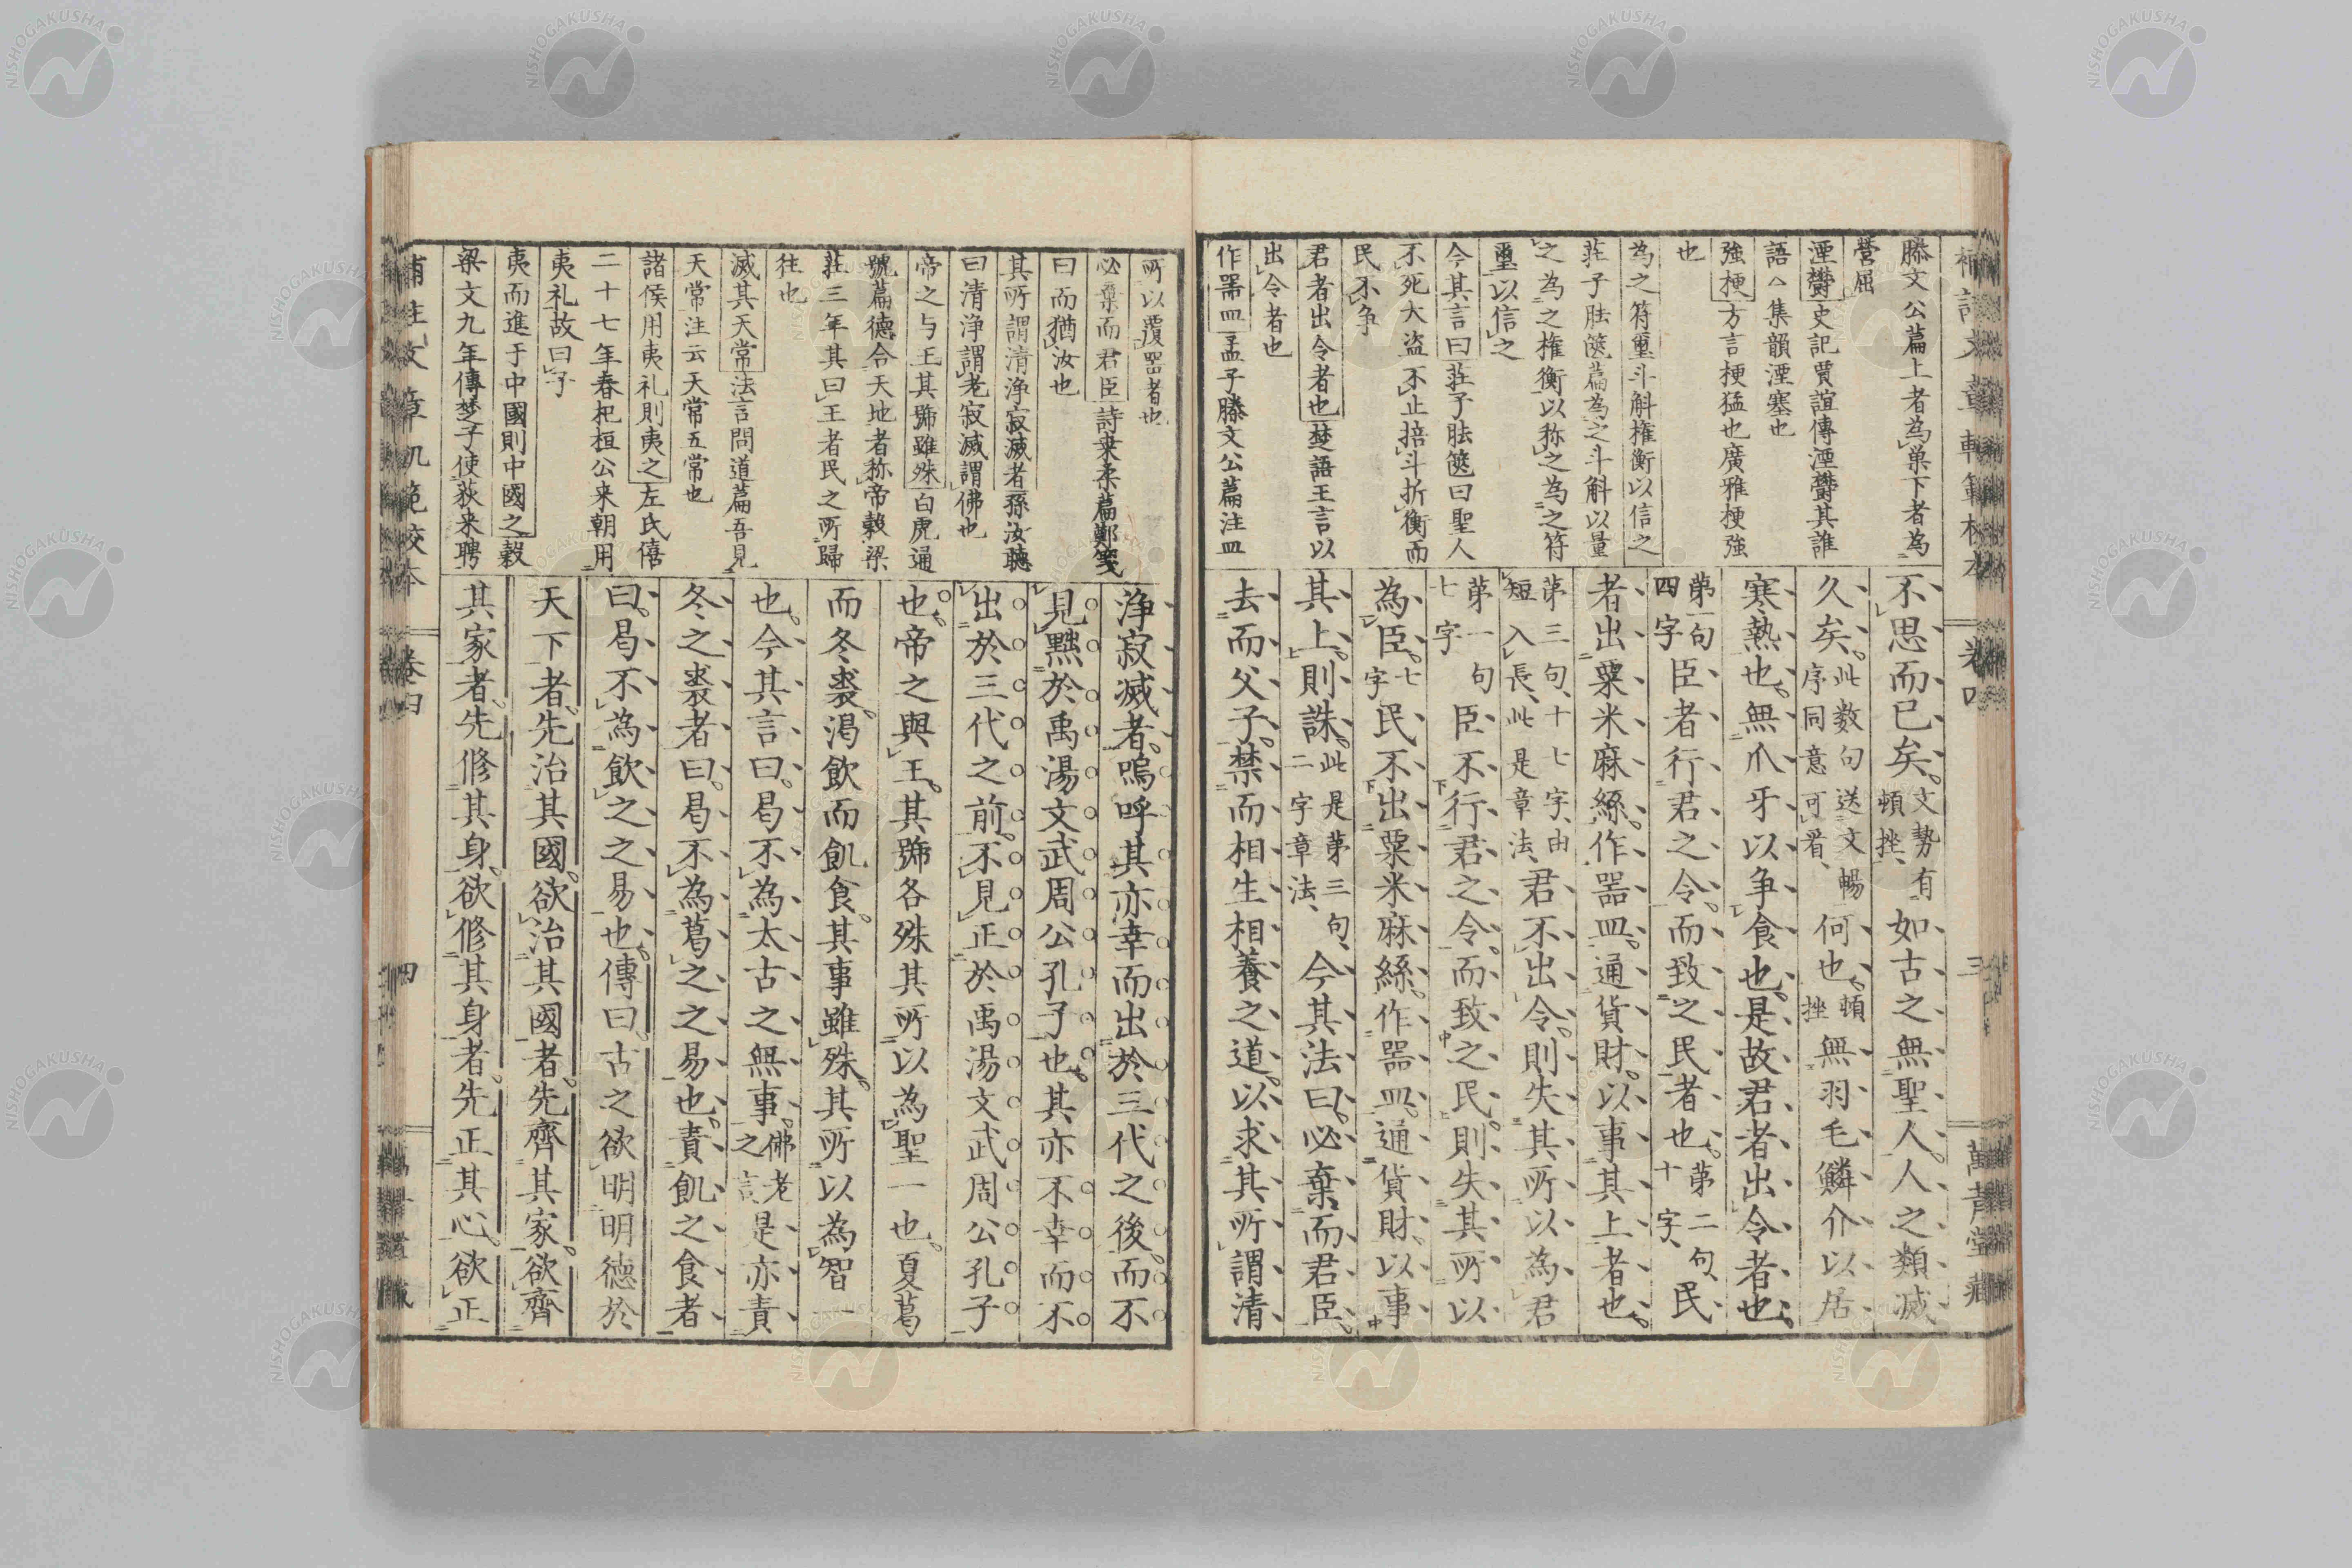 滕文公篇上者為巢下者為
營屈
湮鬱史記賈誼傳湮鬱其誰
語〻集韻湮塞也
強梗方言梗猛也廣雅梗強
也
為之符璽斗斛權衡以信之
荘子胠篋篇為之斗斛以量
之為之権衡以称之為之符
璽以信之
今其言曰荘子胠篋曰聖人
不死大盗不止掊斗折衡而
民不争
君者出令者也楚語王言以
出令者也
作噐皿孟子滕文公篇注皿
不思而已矣文勢有頓挫如古之無聖人人之類滅
久矣此数句送文暢序同意可看何也頓挫無羽毛鱗介以居
寒熱也無爪牙以争食也是故君者出令者也
第一句四字臣者行君之令而致之民者也第二句十字民
者出粟米麻絲作噐皿通貨財以事其上者也
第三句十七字由短入長此是章法君不出令則失其所以為君
第一句七字臣不行君之令而致之民則失其所以
為臣七字民不出粟米麻絲作噐皿通貨財以事
其上則誅此是第三句二字章法今其法曰必棄而君臣
去而父子禁而相生相養之道以求其所謂清
萬青堂藏
所以覆噐者也
必棄而君臣詩桑柔篇鄭箋
曰而猶汝也
其所謂清浄寂滅者孫汝聴
曰清浄謂老寂滅謂佛也
帝之与王其號雖殊白虎通
號篇德合天地者称帝穀梁
荘三年其曰王者民之所歸
往也
滅其天常法言問道篇吾見
天常注云天常五常也
諸侯用夷礼則夷之左氏僖
二十七年春杞桓公来朝用
夷礼故曰子
夷而進于中國則中國之穀
梁文九年傳楚子使荻来聘
浄寂滅者嗚呼其亦幸而出於三代之後而不
見黜於禹湯文武周公孔子也其亦不幸而不
出於三代之前不見正於禹湯文武周公孔子
也帝之與王其號各殊其所以為聖一也夏葛
而冬裘渇飲而飢食其事雖殊其所以為智一
也今其言曰曷不為太古之無事佛老之言是亦責
冬之裘者曰曷不為葛之之易也責飢之食者
曰曷不為飲之之易也傳曰古之欲明明德於
天下者先治其國欲治其國者先齊其家欲齊
其家者先修其身欲修其身者先正其心欲正
卷四
四